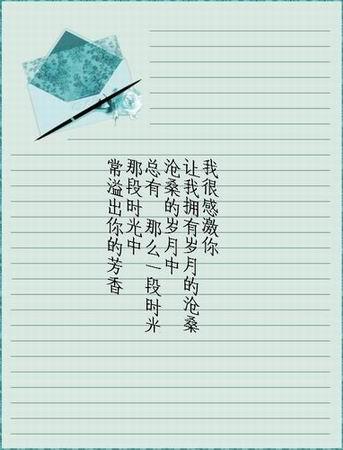 我很感激你
让我拥有岁月的沧桑
沧桑的岁月中
总有 那么一段时光
那段时光中
常溢出你的芳香